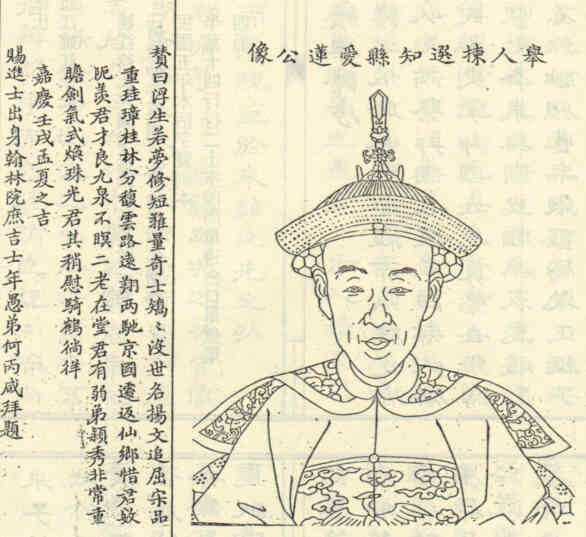 舉人揀選知縣愛蓮公像
贊曰浮生若夢修短難量奇士矯〻沒世名揚文追屈宋品
重珪璋桂林分馥雲路遠翔兩馳京國遽返仙鄉惜君數
阨羨君才良九泉不瞑二老在堂君有弱弟穎秀非常重
瞻劍氣式煥珠光君其稍慰騎鶴徜徉
嘉慶壬戌孟夏之吉
賜進士出身翰林院庶吉士年愚弟何丙咸拜題